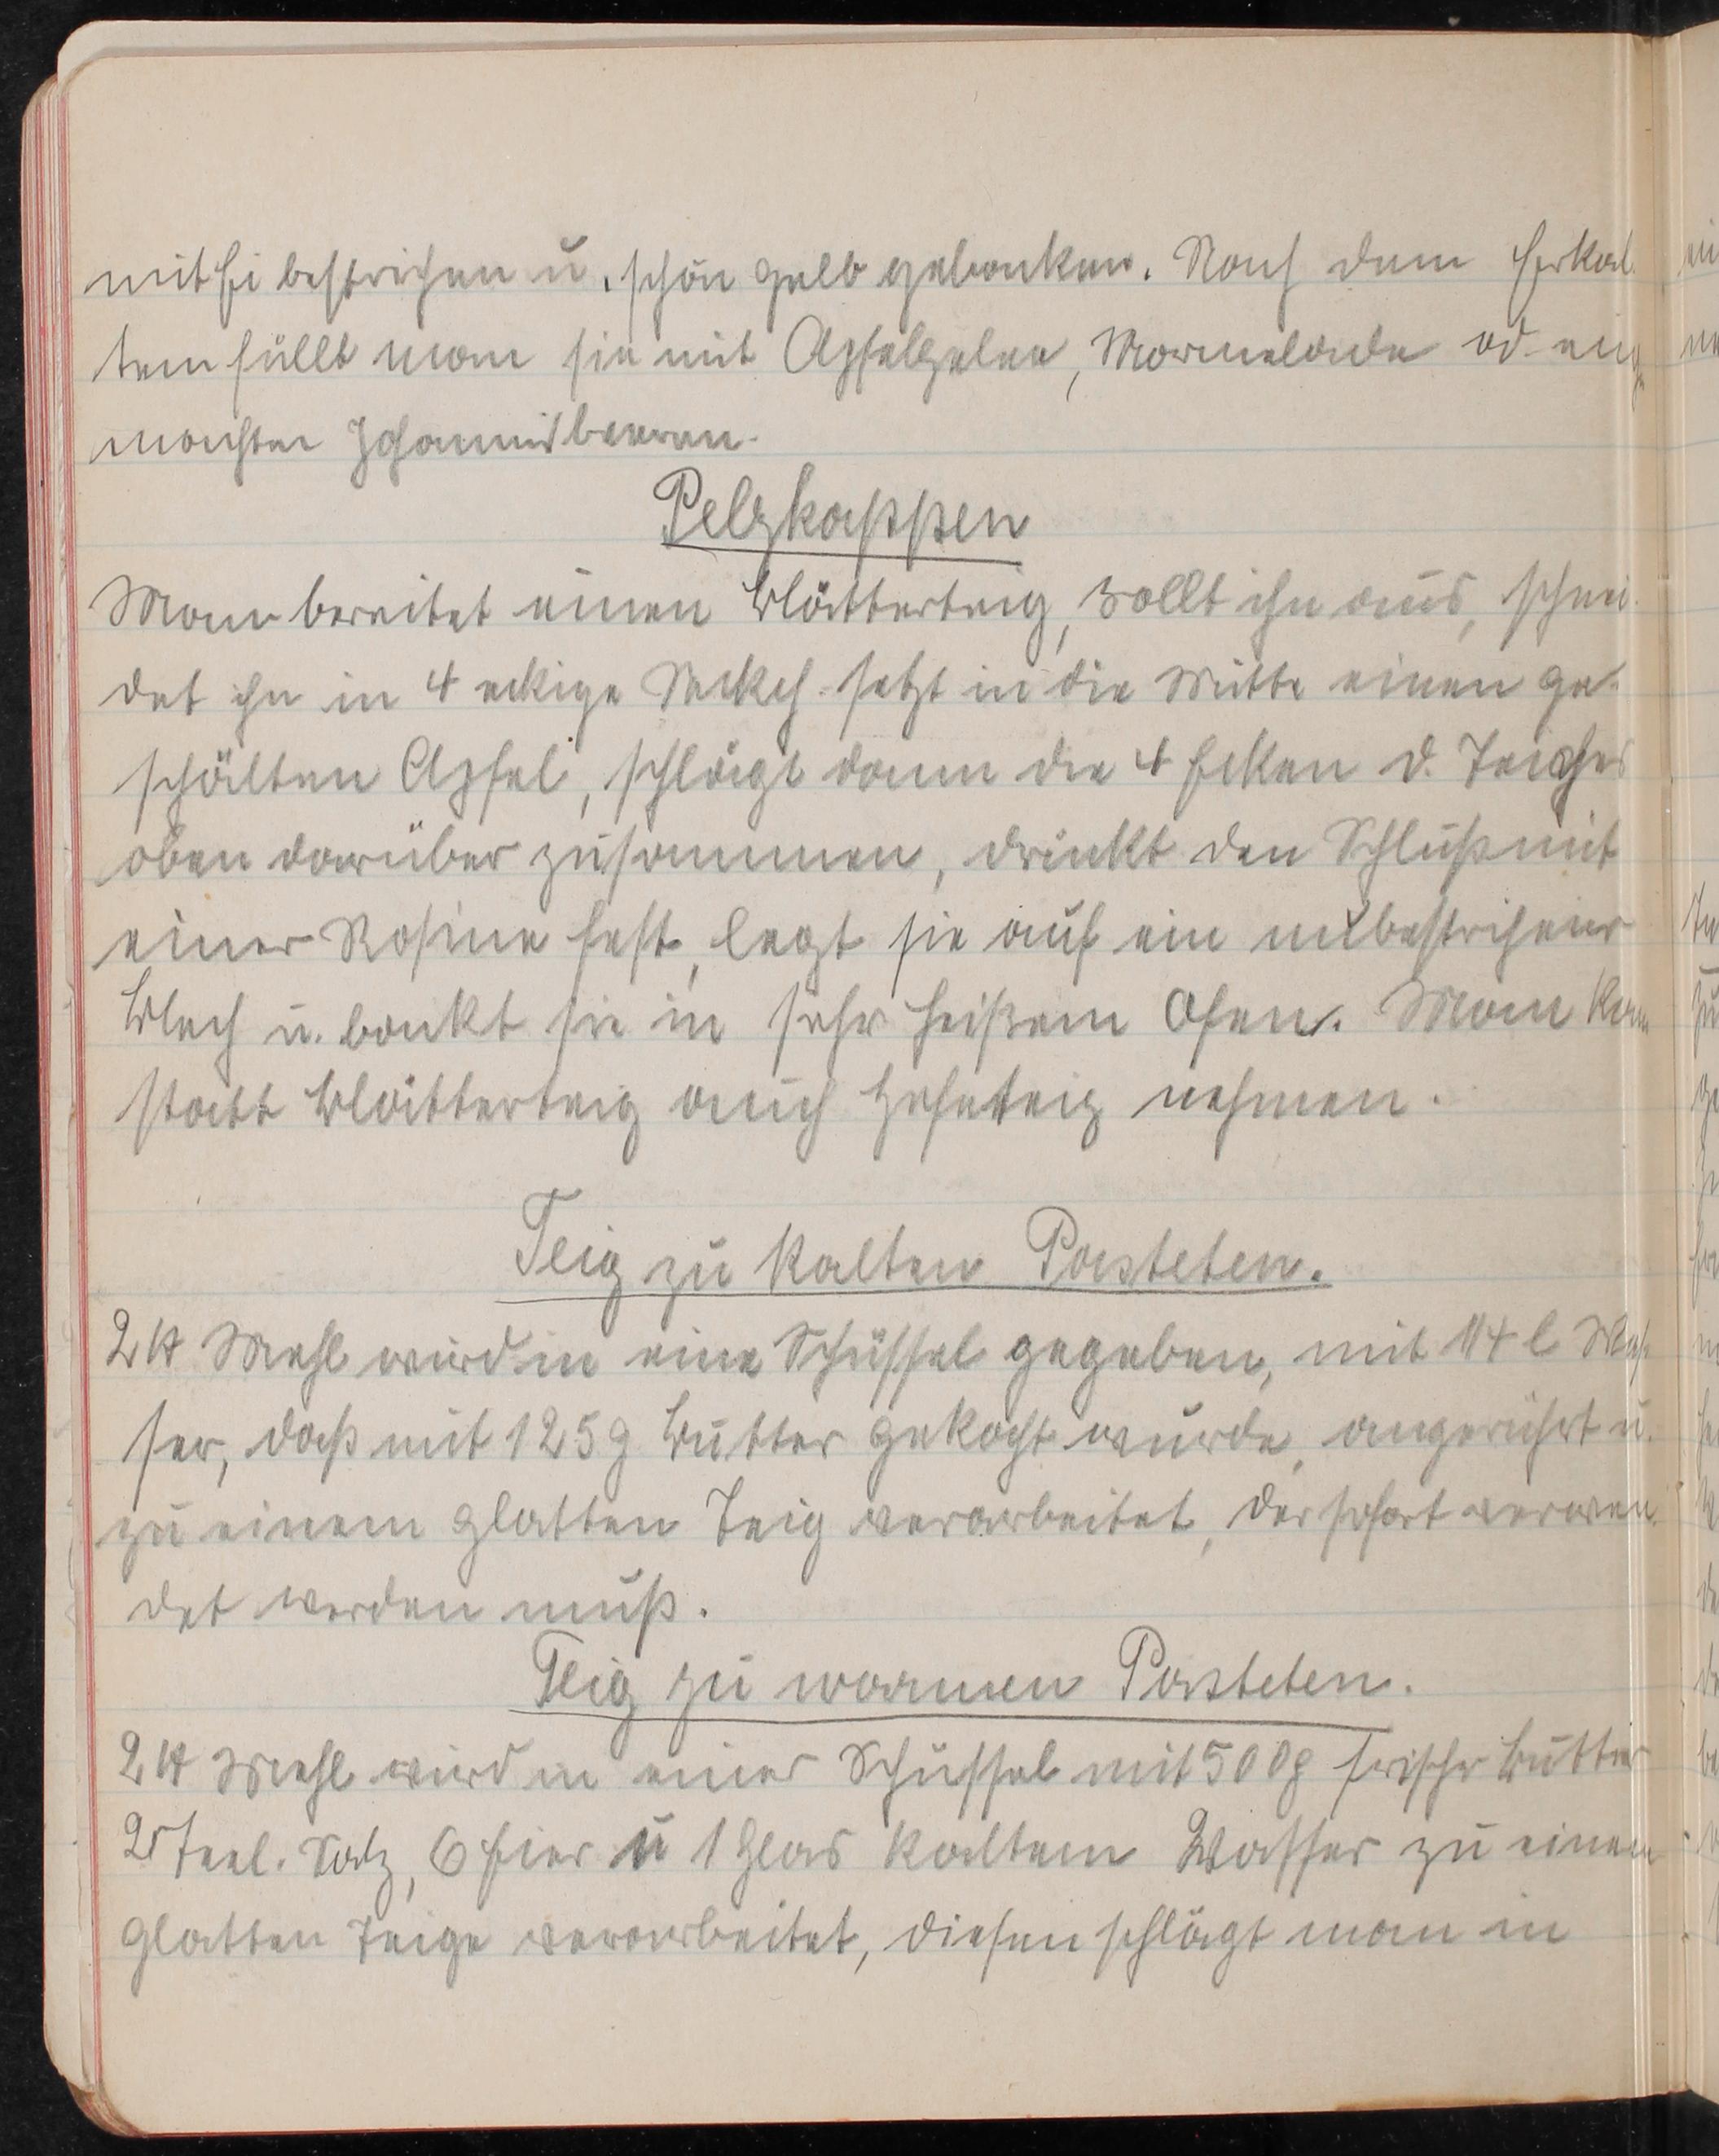 mit Ei bestrichen u. schön gelb gebacken. Nach dem Erkal-
ten füllt man sie mit Apfelgelee, Marmelade od. einge
machten Johannisbeeren.
Pelzkappen
Man bereitet einen Blätterteig, rollt ihn aus, schnei-
det ihn in 4 eckige setzt in die Mitte einen ge-
schälten Apfel, schlägt dann die 4 Ecken d. Teiges
oben darüber zusammen, drückt den Schluß mit
einer Rosine fest, legt sie auf ein unbestrichenes
Blech u. backt sie in sehr heißem Ofen. Man kann
statt Blätterteig auch Hefeteig nehmen.
Teig zu kalten Pasteten.
2 ℔ Mehl wird in eine Schüssel gegeben, mit 1/4 l Was-
ser, daß mit 125 g Butter gekocht wurde, angerührt u.
zu einem glatten Teig verarbeitet, der sofort verwen-
det werden muß.
Teig zu warmen Pasteten.
2 ℔ Mehl wird in einer Schüssel mit 500 g frischer Butter
2 Teel. Salz, 6 Eier u 1 Glas kaltem Wasser zu einem
glatten Teige verarbeitet, diesen schlägt man in